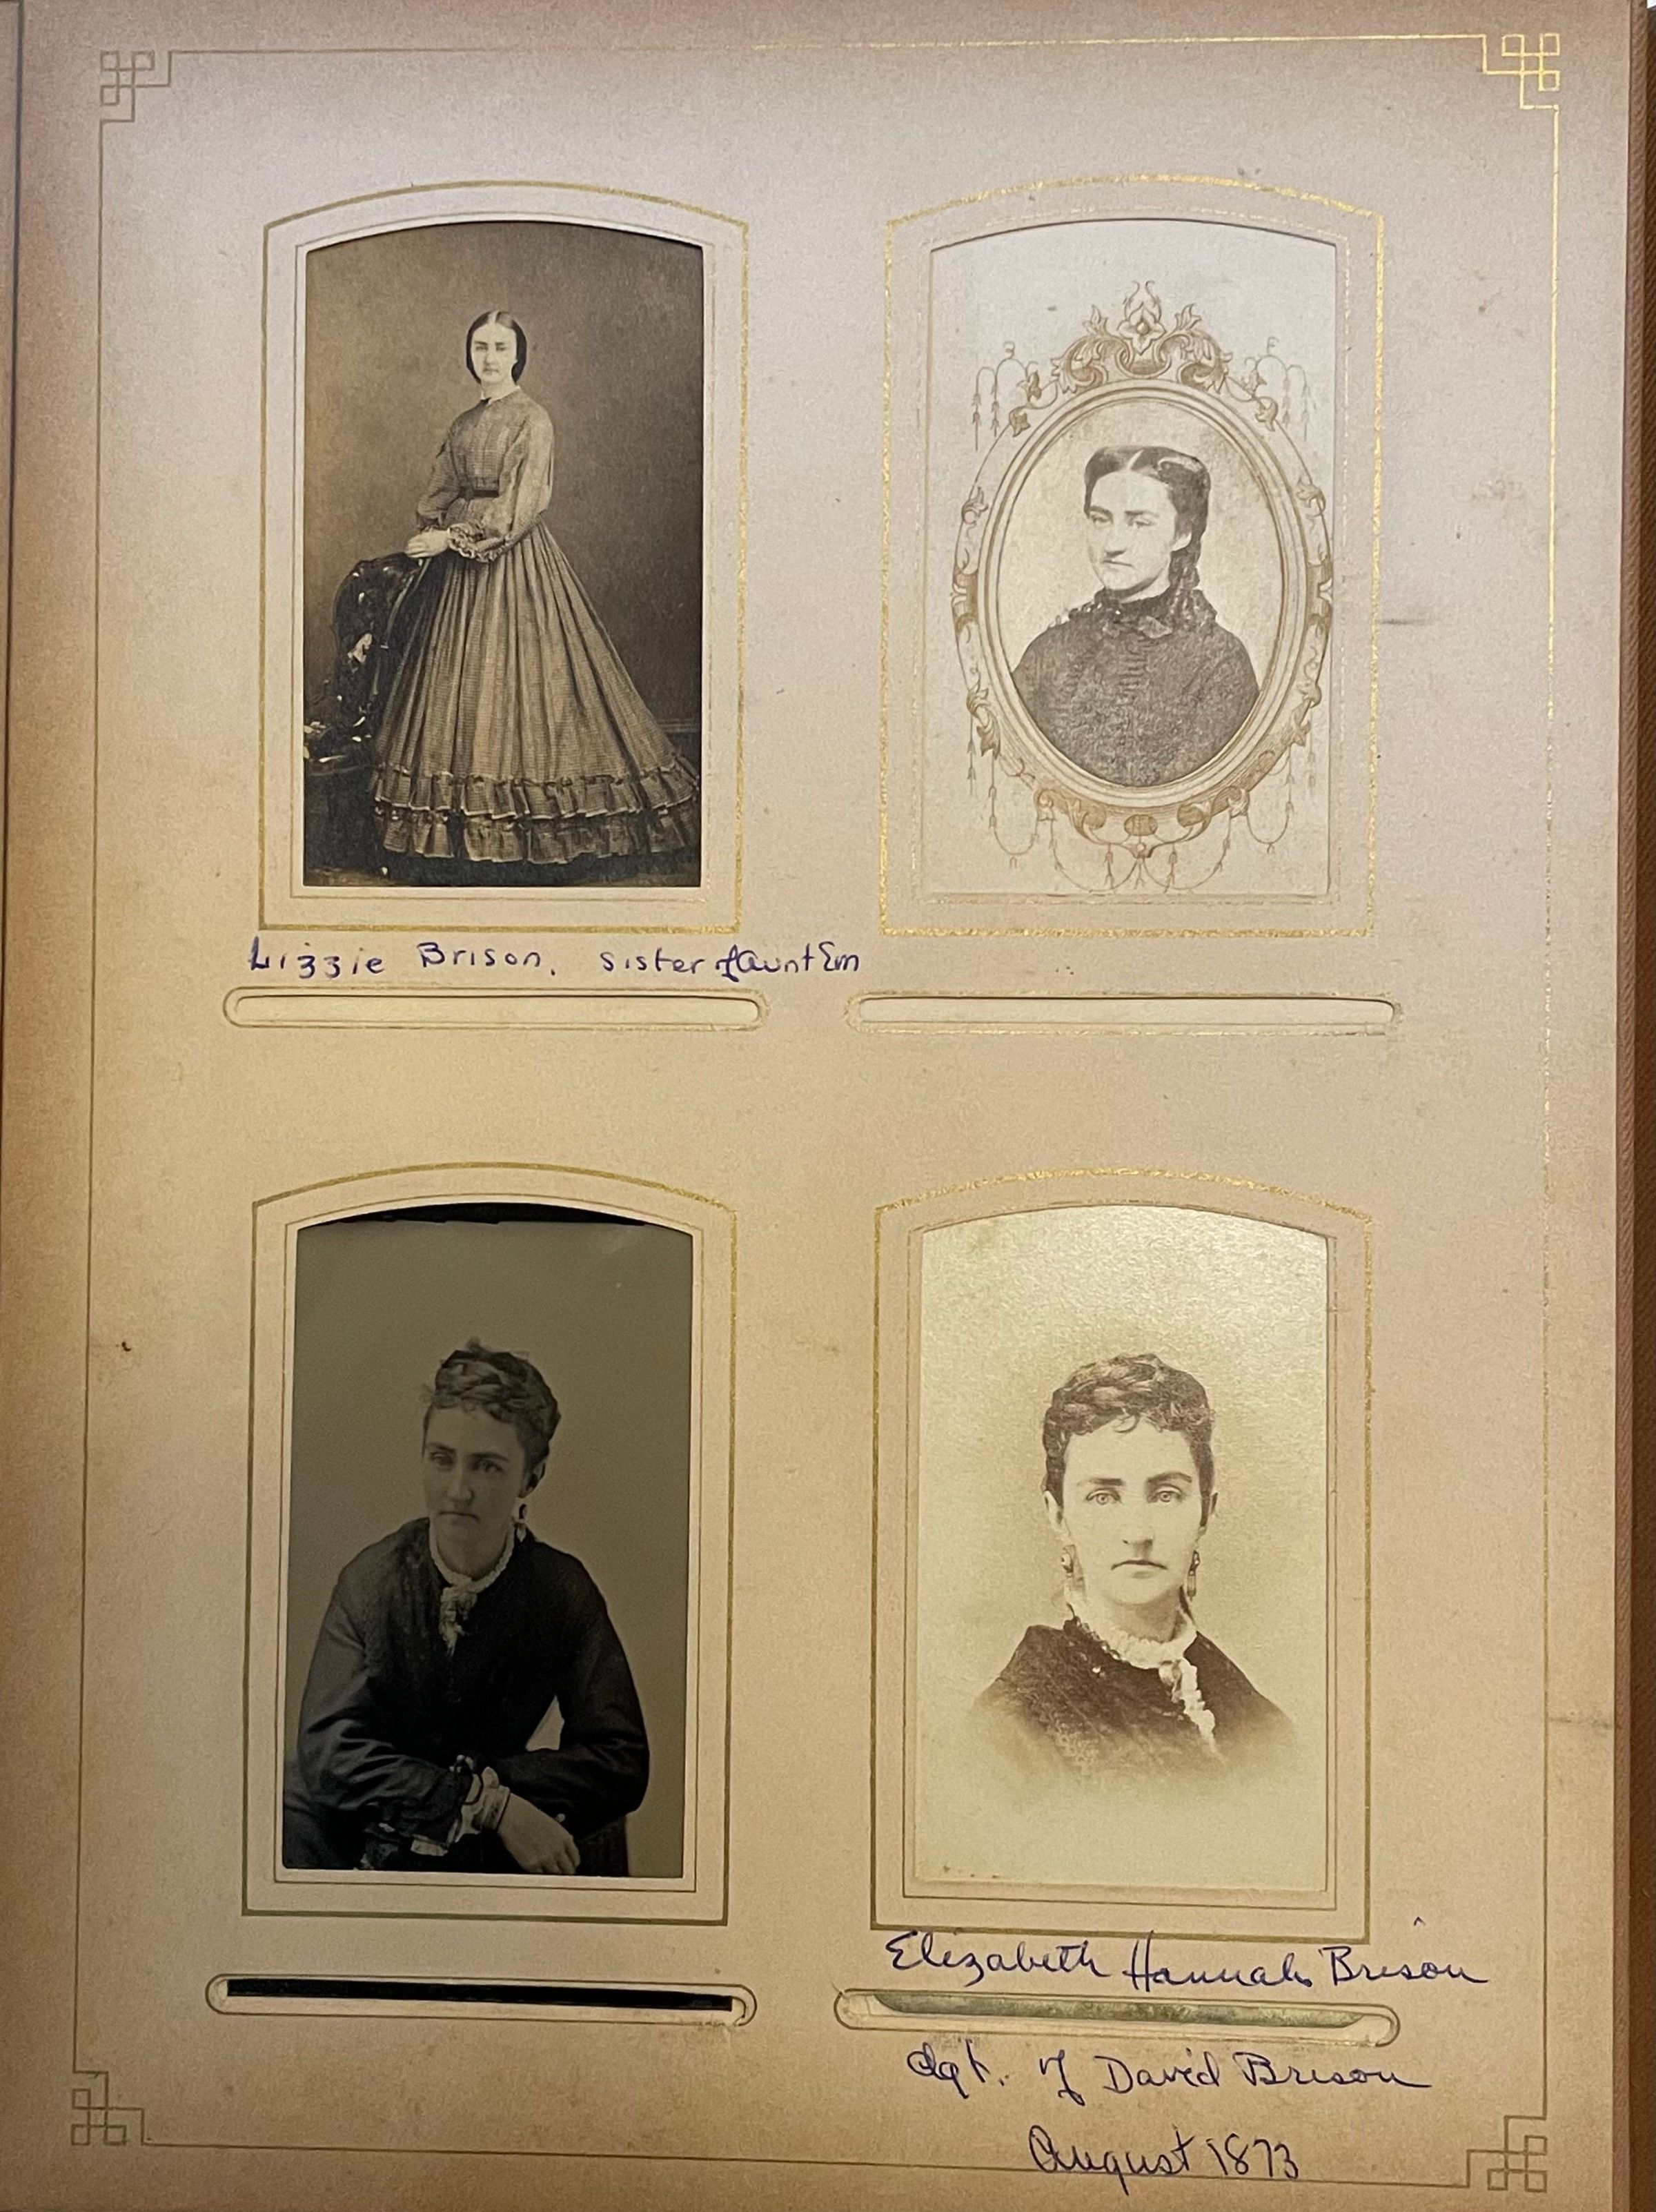 Lizzie Brison, sister of Aunt Em
Elizabeth Hannah Brison
dgt. of David Brison
August 1873